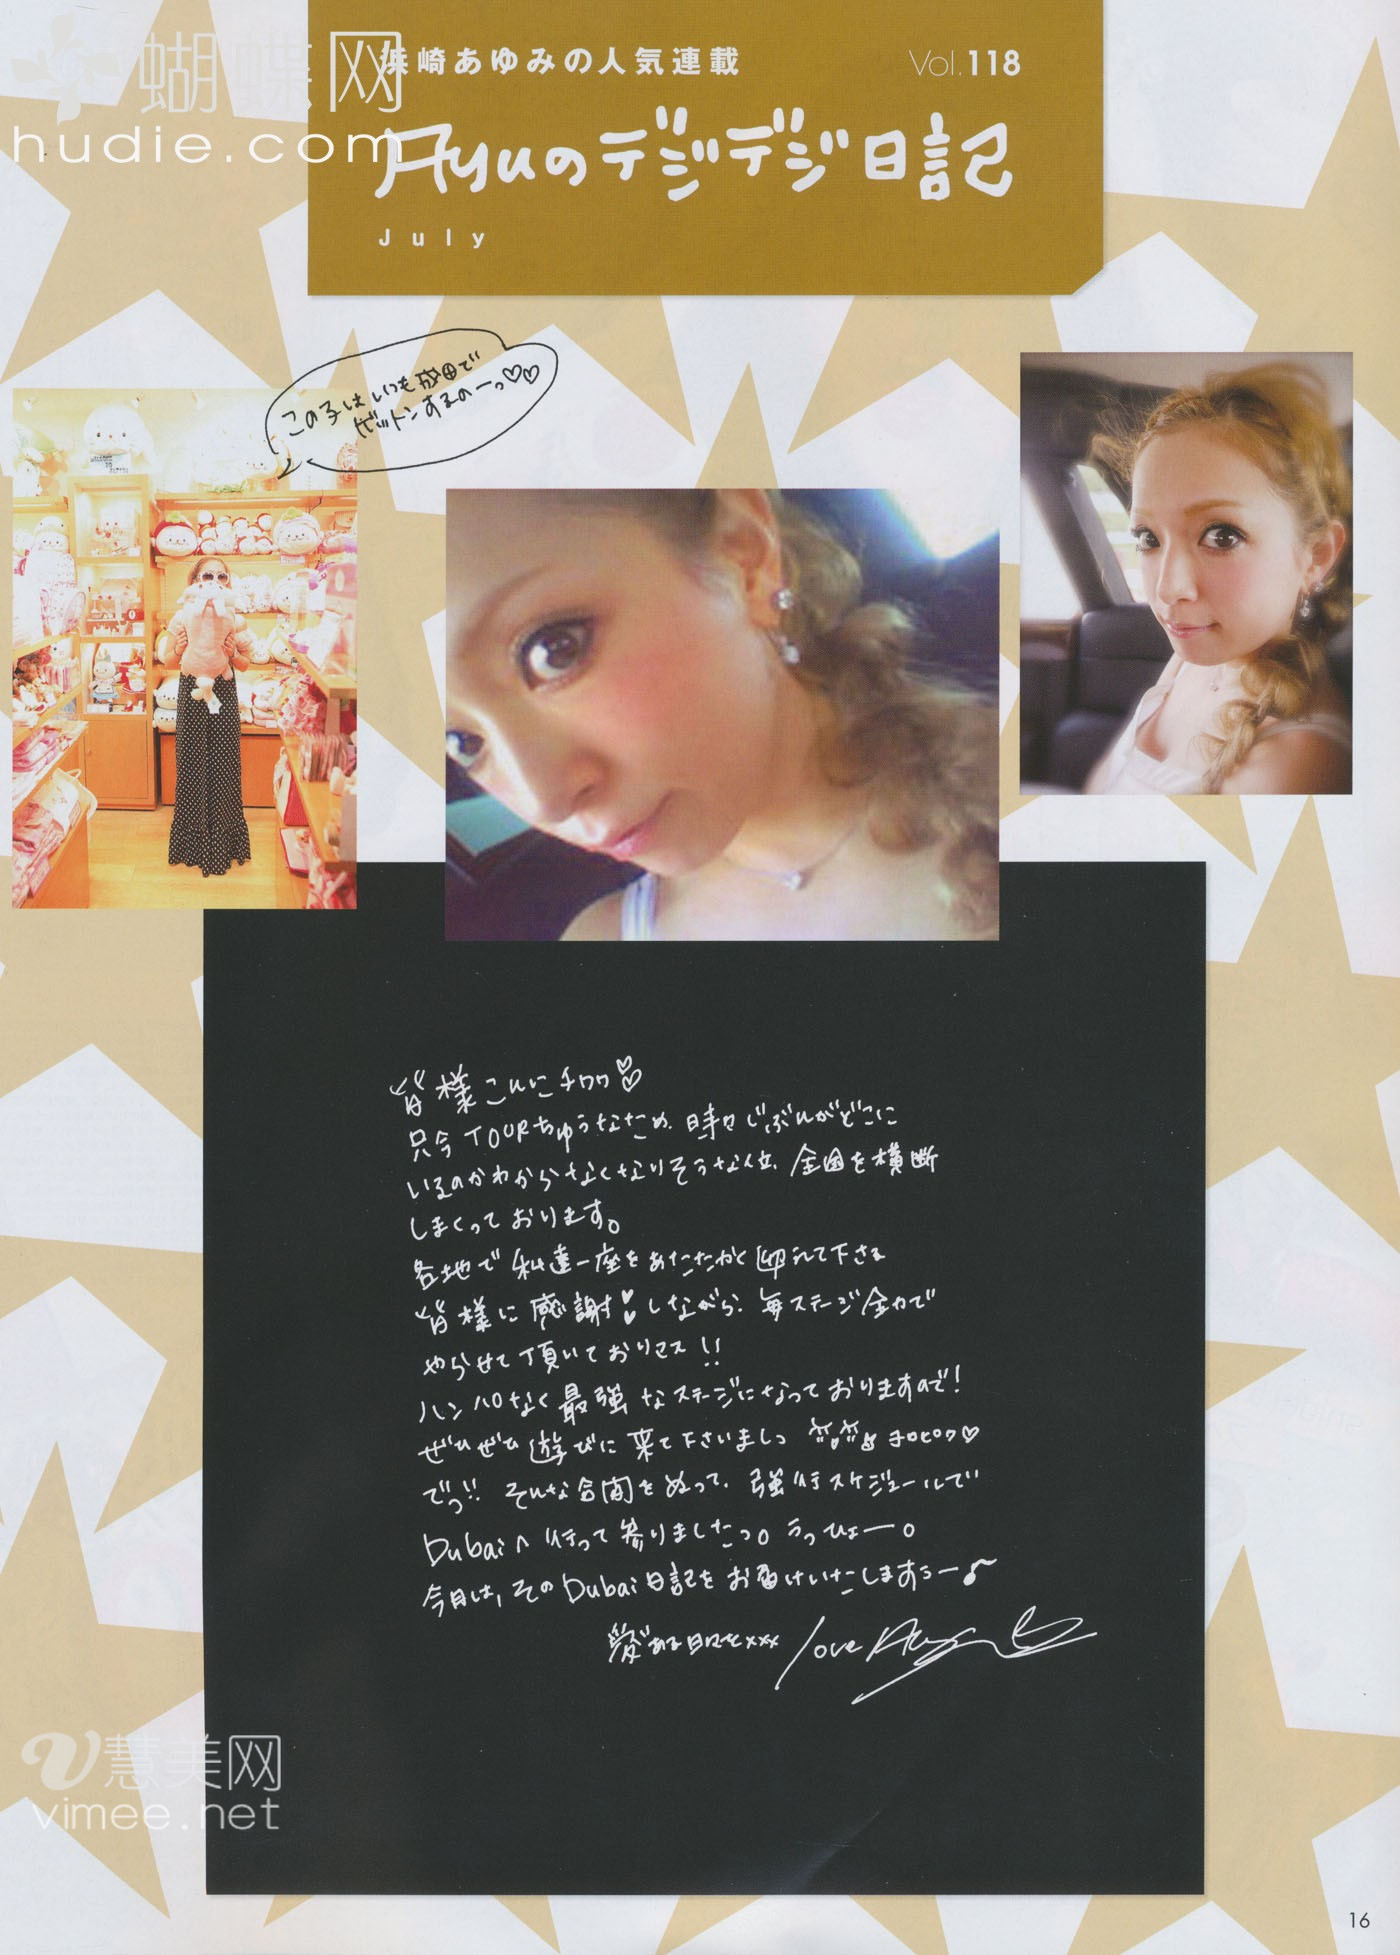 蝴蝶网
hudie.com
浜崎あゆみの人気連載
Vol.118
Ayuのデジデジ日記
July
この子はいつも成田で
ゲットンするのーっ♡♡
皆様こんにチワワ
只今TOURちゅうなため、時々じぶんがどこに
いるのかわからなくなりそうな位、全国を横断
しまくっております。
各地で私達一座をあたたかく迎えて下さる
皆様に感謝しながら、毎ステージ全力で
やらせて頂いておりマス!!
ハンパなく最強なステージになっておりますので!
ぜひぜひ遊びに来て下さいましっ
でっ!! そんな合間をぬって、強行スケジュールで
Dubaiへ行って参りましたっ。うっひょー。
今月は、そのDubai日記をお届けいたしますぅー♪
愛ある日々をxxx love Ayu
慧美网
vimee.net
16